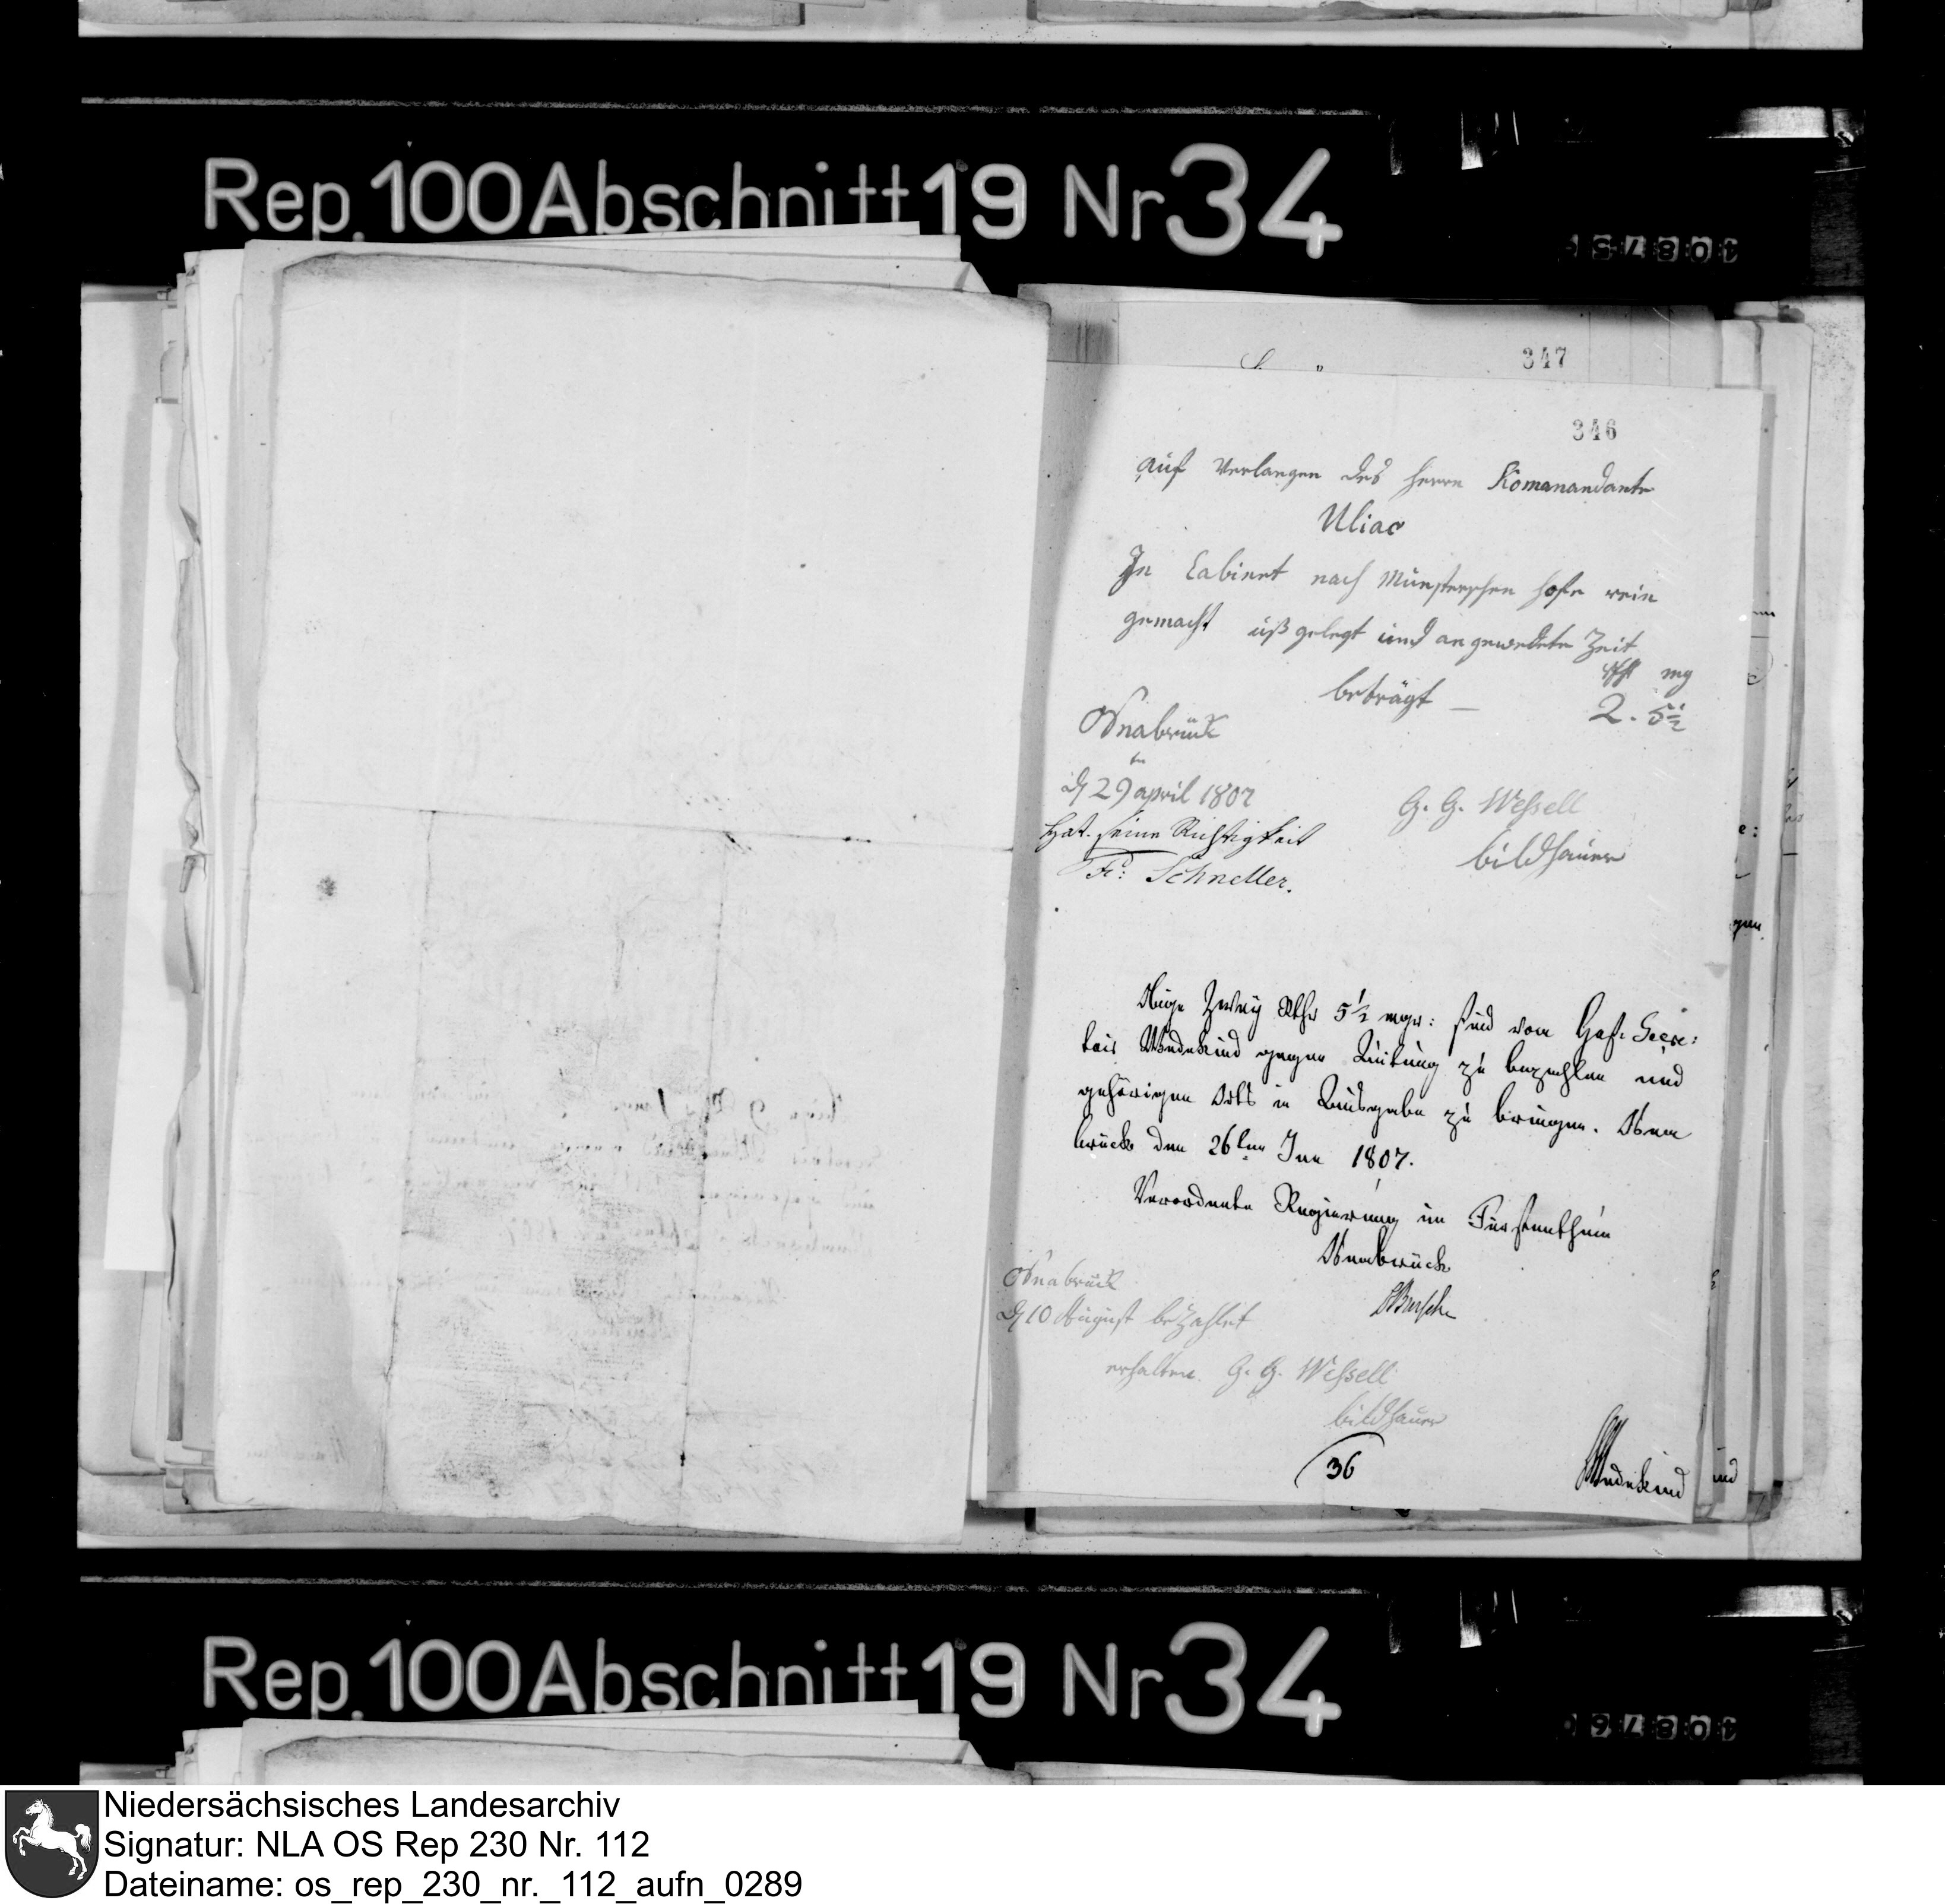 Rep. 100 Abschnitt 19 Nr 34
347
346
auf Verlangen des Herrn Komanandante
Uliac
In Cabinet nach Münsterschen hofe rein
gemacht uß gelegt und angewendete Zeit
rthl mg
beträgt — 2. 5½
Osnabrück
d 29 april 1807
G. G. Wessell
bildhauer
Hat seine Richtigkeit
Fr: Schneller.
Obige Zwey Rthr 5½ mgr: sind vom Hof-Secre:
tair Wedekind gegen Quitung zu bezahlen und
gehörigen Orts in Ausgabe zu bringen. Osna
brück den 26ten Jun 1807.
Verordnete Regierung im Fürstenthum
Osnabrück
Busche
Osnabrück
d 10 August bezahlet
erhalten. G. G. Wessell
bildhauer
36
Wedekind
Rep. 100 Abschnitt 19 Nr 34
Niedersächsisches Landesarchiv
Signatur: NLA OS Rep 230 Nr. 112
Dateiname: os_rep_230_nr._112_aufn_0289